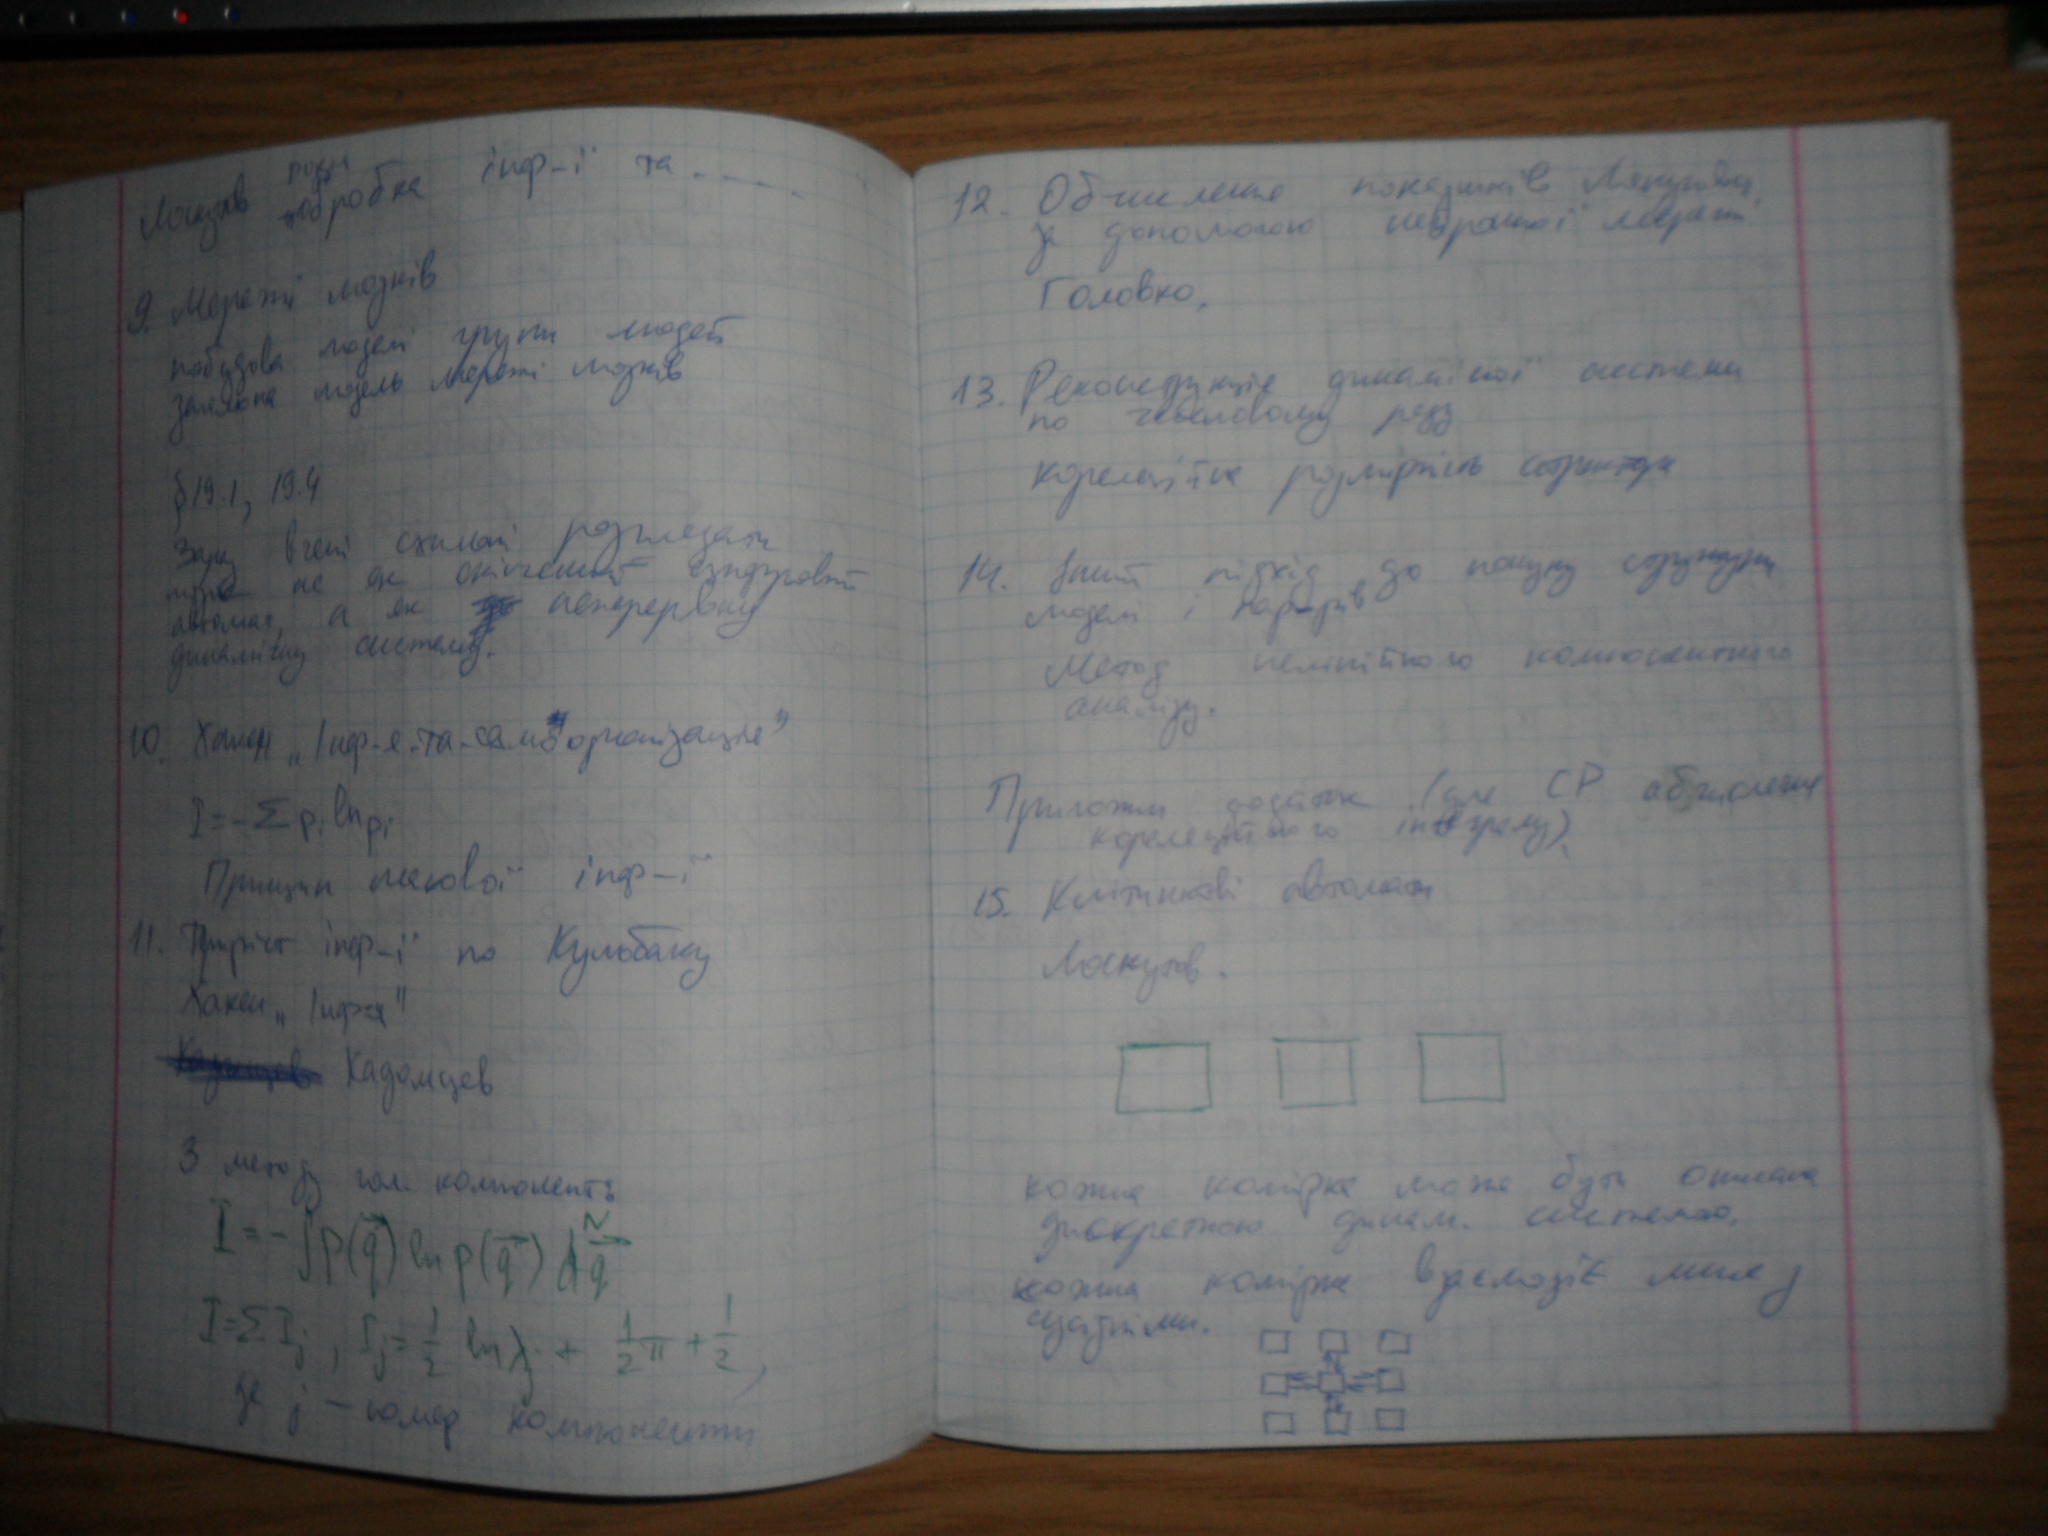 Лоскутов обробка інф-ї та . - - - -
9. Мережі мозків
побудова моделі групи людей
загальна модель мережі мозків
§19.1, 19.4
Зараз вчені схильні розглядати
не як скінченний
автомат, а як неперервну
динамічну систему.
10. Хакен „Інф-я та самоорганізація”
I = - Σ pᵢ ln pᵢ
Принцип інф-ї
11. Приріст інф-ї по Кульбаку
Хакен „Інф-я”
Кадомцев
З методу гол. компонент:
I = - ∫ p(q⃗) ln p(q⃗) dᴺq⃗
I = Σ Iⱼ, Iⱼ = 1/2 ln λⱼ + 1/2 π + 1/2,
де j – номер компоненти
12. Обчислення показників Ляпунова
за допомогою нейронної мережі
Головко.
13. Реконструкція динамічної системи
по часовому ряду
кореляційна розмірність структури
14. Інший підхід до пошуку структури
моделі і
Метод нелінійного компонентного
аналізу.
додаток (для СР обчислення
кореляційного інтегралу)
15. Клітинкові автомати
Лоскутов.
кожна комірка може бути описана
дискретною динам. системою.
кожна комірка взаємодіє лише з
сусідніми.